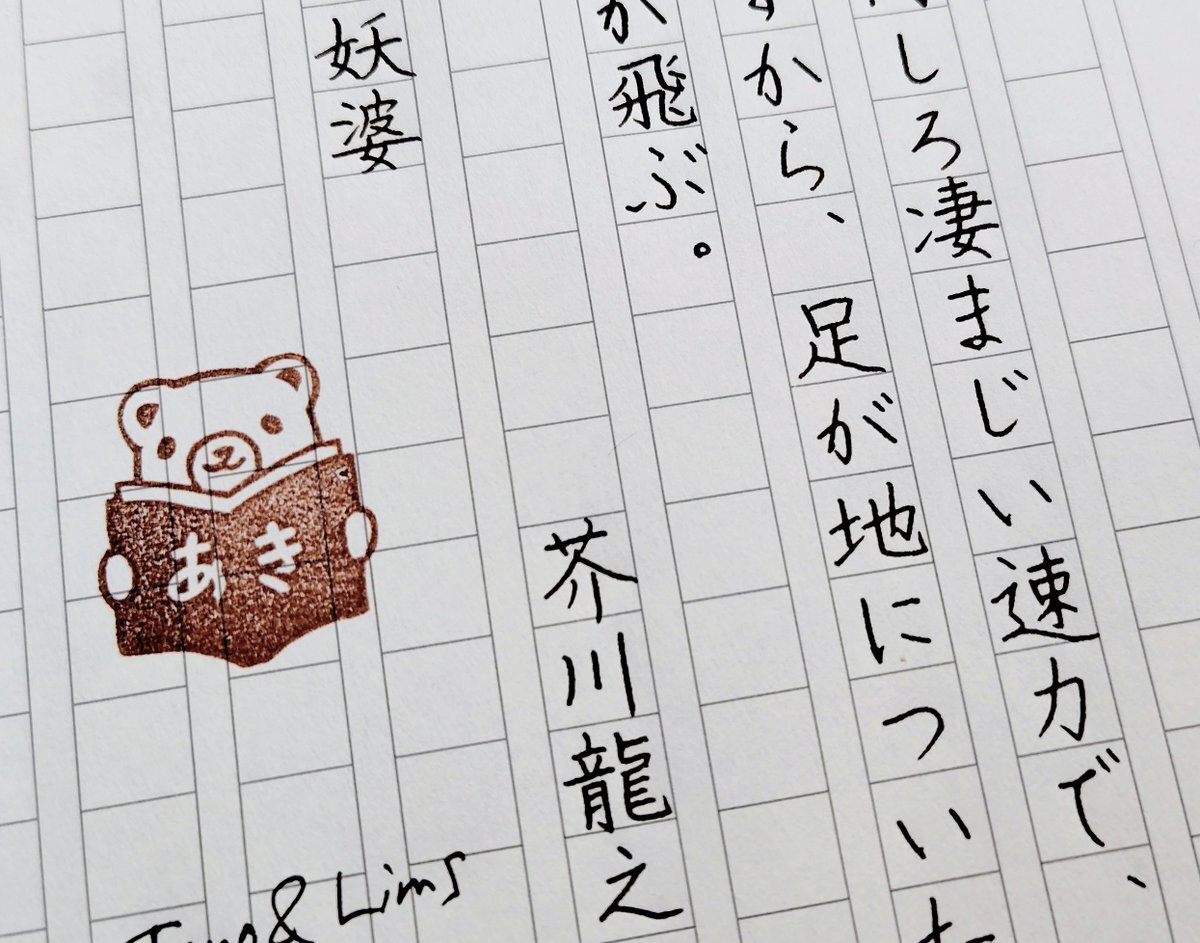 しろ凄まじい速力で、
から、足が地につい
が飛ぶ。
芥川龍之
妖婆
あき
& Lims